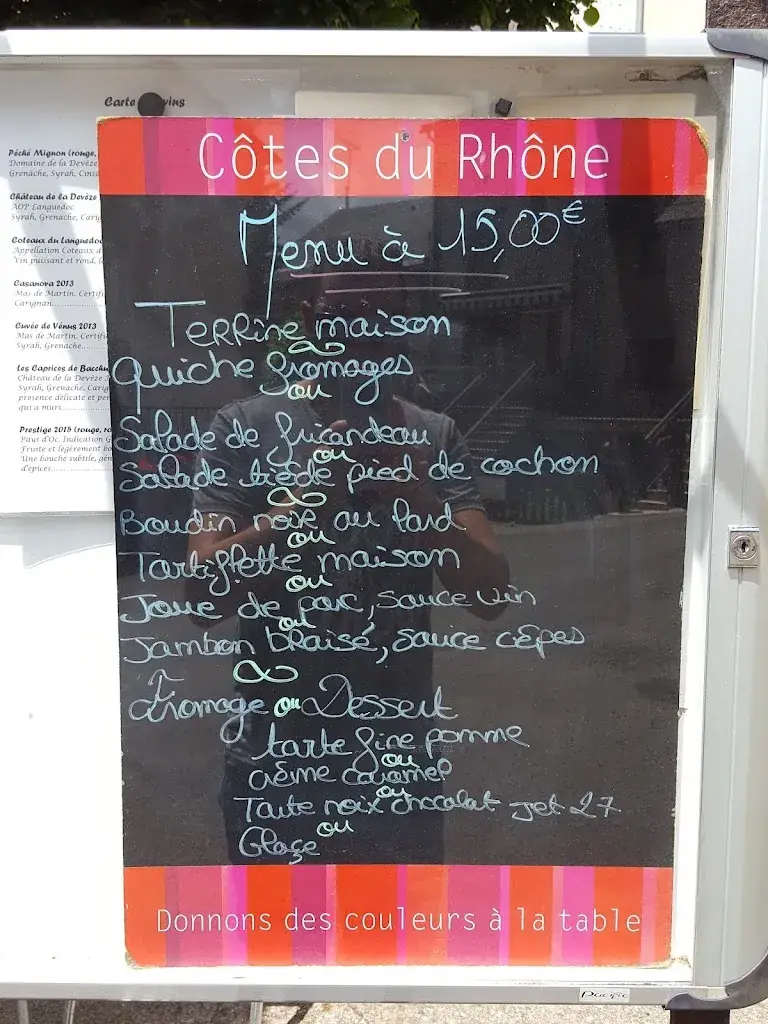 Carte vins
Péché Mignon (rouge,
Domaine de la Devèze
Grenache, Syrah, Cins
Château de la Devèze
AOP Languedoc
Syrah, Grenache, Carig
Coteaux du Languedoc
Appellation Coteaux d
Vin puissant et rond, l
Casanova 2013
Mas de Martin, Certifi
Carignan
Cuvée de Vénus 2013
Mas de Martin, Certifi
Syrah, Grenache
Les Caprices de Bacchu
Château de la Devèze
Syrah, Grenache, Carig
présence délicate et per
qui a muri
Prestige 2015 (rouge, ro
Pays d'Oc, Indication G
Fruité et légèrement bo
Une bouche subtile, gén
d'épices
Côtes du Rhône
Menu à 15,00€
Terrine maison
Quiche fromages
ou
Salade de fricandeau
ou
Salade tiède pied de cochon
Boudin noir au lard
ou
Tartiflette maison
ou
Joue de porc, sauce vin
ou
Jambon braisé, sauce cèpes
Fromage ou Dessert
tarte fine pomme
ou
crème caramel
ou
Tarte noix chocolat Jet 27
ou
Glaçe
Donnons des couleurs à la table
Pacific